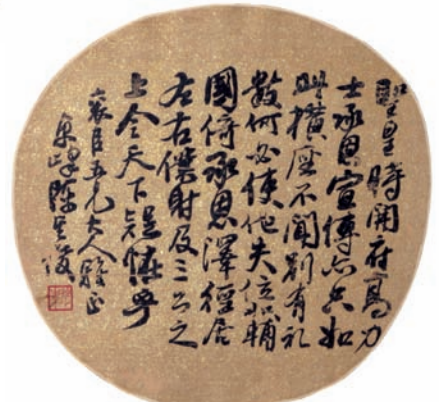 聖皇時開府高力
士承恩宣傳亦只如
此橫座不聞別有礼
數何必使他失位如輔
國倚承恩澤徑居
左右僕射及三公之
上令天下疑怪乎
襄臣五兄大人雅正
陳